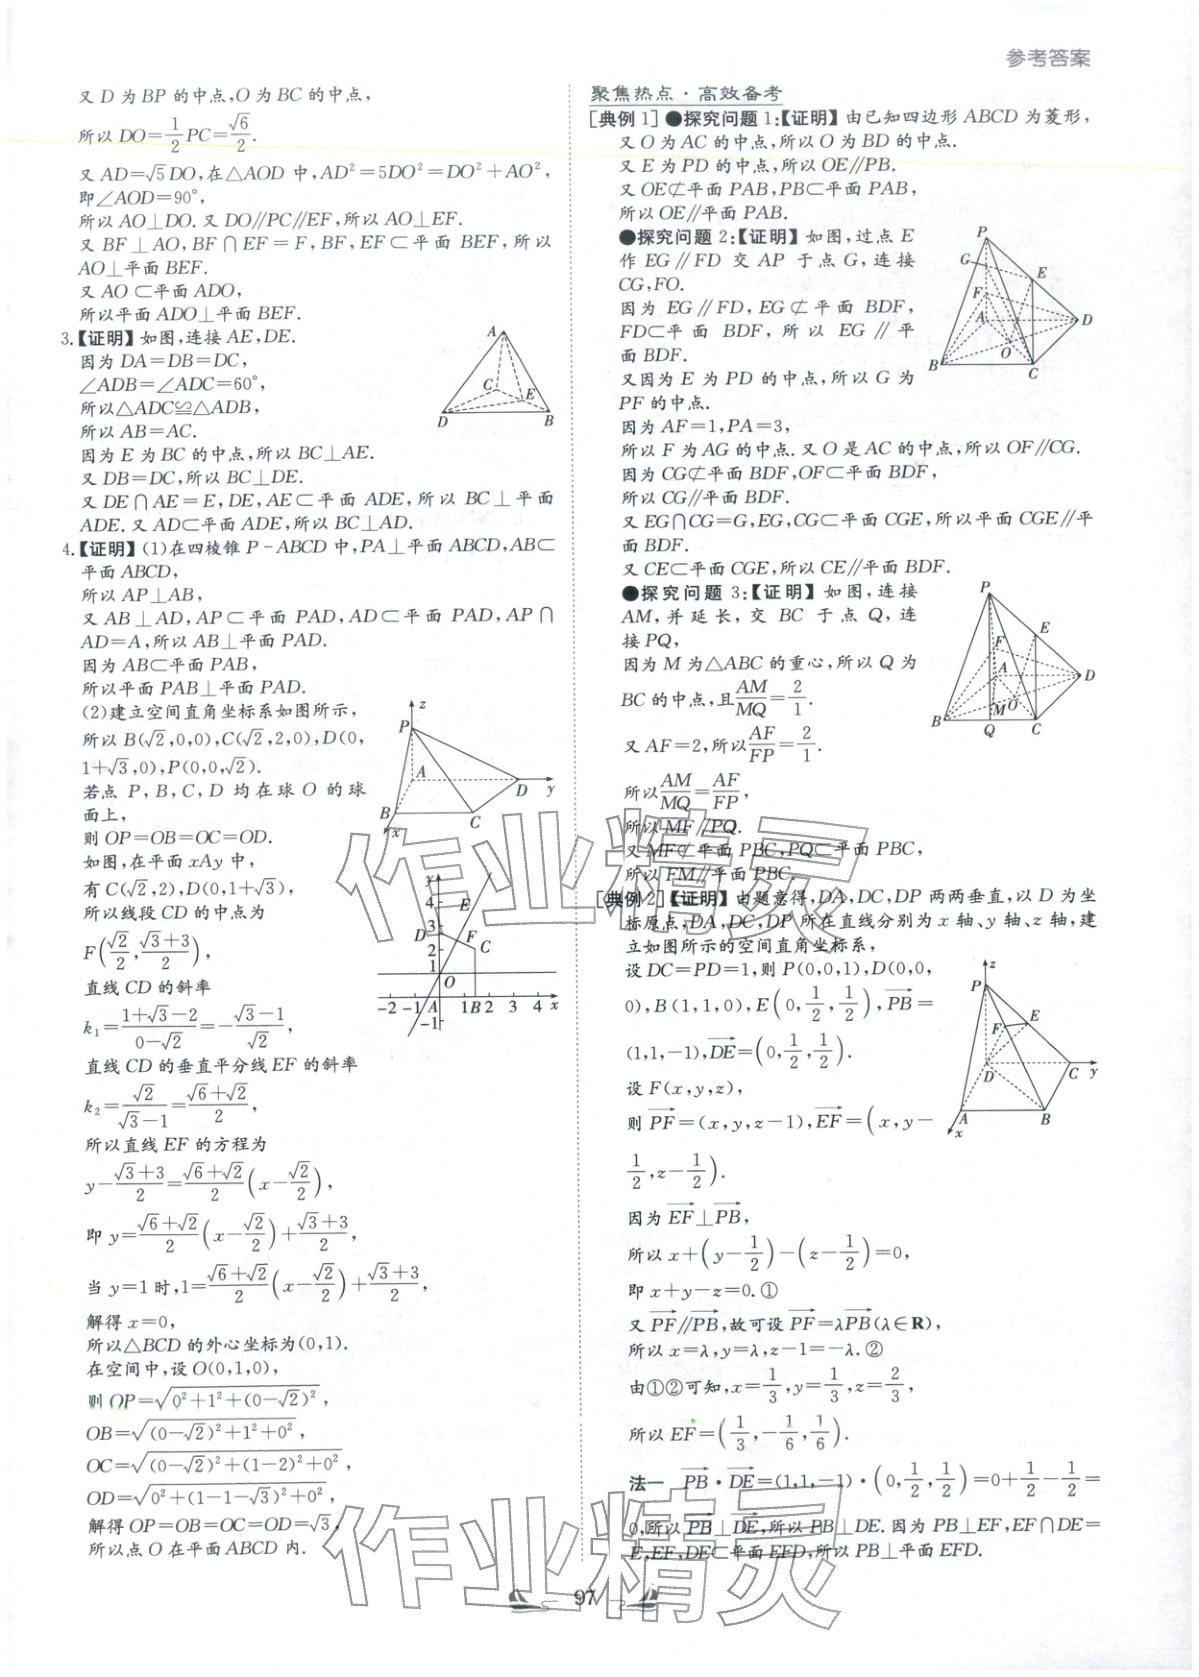 参考答案
又 D 为 BP 的中点,O 为 BC 的中点,
所以 DO=1/2 PC=√6/2.
又 AD=√5DO,在△AOD 中,AD²=5DO²=DO²+AO²,
即∠AOD=90°,
所以 AO⊥DO.又 DO∥PC∥EF,所以 AO⊥EF.
又 BF⊥AO,BF∩EF=F,BF,EF⊂平面 BEF,所以
AO⊥平面 BEF.
又 AO⊂平面 ADO,
所以平面 ADO⊥平面 BEF.
3.【证明】如图,连接 AE,DE.
因为 DA=DB=DC,
∠ADB=∠ADC=60°,
所以△ADC≌△ADB,
所以 AB=AC.
因为 E 为 BC 的中点,所以 BC⊥AE.
又 DB=DC,所以 BC⊥DE.
又 DE∩AE=E,DE,AE⊂平面 ADE,所以 BC⊥平面
ADE.又 AD⊂平面 ADE,所以 BC⊥AD.
A
C
E
D
B
4.【证明】(1)在四棱锥 P-ABCD 中,PA⊥平面 ABCD,AB⊂
平面 ABCD,
所以 AP⊥AB,
又 AB⊥AD,AP⊂平面 PAD,AD⊂平面 PAD,AP∩
AD=A,所以 AB⊥平面 PAD.
因为 AB⊂平面 PAB,
所以平面 PAB⊥平面 PAD.
(2)建立空间直角坐标系如图所示,
所以 B(√2,0,0),C(√2,2,0),D(0,
1+√3,0),P(0,0,√2).
若点 P,B,C,D 均在球 O 的球
面上,
则 OP=OB=OC=OD.
如图,在平面 xAy 中,
有 C(√2,2),D(0,1+√3),
所以线段 CD 的中点为
F(√2/2,(√3+3)/2),
直线 CD 的斜率
k₁=(1+√3-2)/(0-√2)=-(√3-1)/√2,
直线 CD 的垂直平分线 EF 的斜率
k₂=√2/(√3-1)=(√6+√2)/2,
所以直线 EF 的方程为
y-(√3+3)/2=(√6+√2)/2(x-√2/2),
即 y=(√6+√2)/2(x-√2/2)+(√3+3)/2,
当 y=1 时,1=(√6+√2)/2(x-√2/2)+(√3+3)/2,
解得 x=0,
所以△BCD 的外心坐标为(0,1).
在空间中,设 O(0,1,0),
则 OP=√(0²+1²+(0-√2)²),
OB=√((0-√2)²+1²+0²),
OC=√((0-√2)²+(1-2)²+0²),
OD=√(0²+(1-1-√3)²+0²),
解得 OP=OB=OC=OD=√3,
所以点 O 在平面 ABCD 内.
z
P
A
D
y
B
x
C
y
4
E
D
3
F
2
C
1
O
-2 -1 A 1B2 3 4 x
-1
聚焦热点·高效备考
[典例 1] ●探究问题 1:【证明】由已知四边形 ABCD 为菱形,
又 O 为 AC 的中点,所以 O 为 BD 的中点.
又 E 为 PD 的中点,所以 OE∥PB.
又 OE⊄平面 PAB,PB⊂平面 PAB,
所以 OE∥平面 PAB.
●探究问题 2:【证明】如图,过点 E
作 EG∥FD 交 AP 于点 G,连接
CG,FO.
因为 EG∥FD,EG⊄平面 BDF,
FD⊂平面 BDF,所以 EG∥平
面 BDF.
又因为 E 为 PD 的中点,所以 G 为
PF 的中点.
因为 AF=1,PA=3,
所以 F 为 AG 的中点.又 O 是 AC 的中点,所以 OF∥CG.
因为 CG⊄平面 BDF,OF⊂平面 BDF,
所以 CG∥平面 BDF.
又 EG∩CG=G,EG,CG⊂平面 CGE,所以平面 CGE∥平
面 BDF.
又 CE⊂平面 CGE,所以 CE∥平面 BDF.
P
G
E
F
A
D
O
B
C
●探究问题 3:【证明】如图,连接
AM,并延长,交 BC 于点 Q,连
接 PQ,
因为 M 为△ABC 的重心,所以 Q 为
BC 的中点,且AM/MQ=2/1.
又 AF=2,所以AF/FP=2/1.
所以AM/MQ=AF/FP,
所以 MF∥PQ.
又 MF⊄平面 PBC,PQ⊂平面 PBC,
所以 FM∥平面 PBC.
P
E
F
A
D
M
O
B
Q
C
[典例 2]【证明】由题意得,DA,DC,DP 两两垂直,以 D 为坐
标原点,DA,DC,DP 所在直线分别为 x 轴、y 轴、z 轴,建
立如图所示的空间直角坐标系,
设 DC=PD=1,则 P(0,0,1),D(0,0,
0),B(1,1,0),E(0,1/2,1/2),PB=
(1,1,-1),DE=(0,1/2,1/2).
设 F(x,y,z),
则 PF=(x,y,z-1),EF=(x,y-
1/2,z-1/2).
因为 EF⊥PB,
所以 x+(y-1/2)-(z-1/2)=0,
即 x+y-z=0.①
又 PF∥PB,故可设 PF=λPB(λ∈R),
所以 x=λ,y=λ,z-1=-λ.②
由①②可知,x=1/3,y=1/3,z=2/3,
所以 EF=(1/3,-1/6,1/6).
法一 PB·DE=(1,1,-1)·(0,1/2,1/2)=0+1/2-1/2=
0,所以 PB⊥DE,所以 PB⊥DE.因为 PB⊥EF,EF∩DE=
E,EF,DE⊂平面 EFD,所以 PB⊥平面 EFD.
z
P
F
E
D
C
y
A
x
B
作业精灵
作业精灵
97